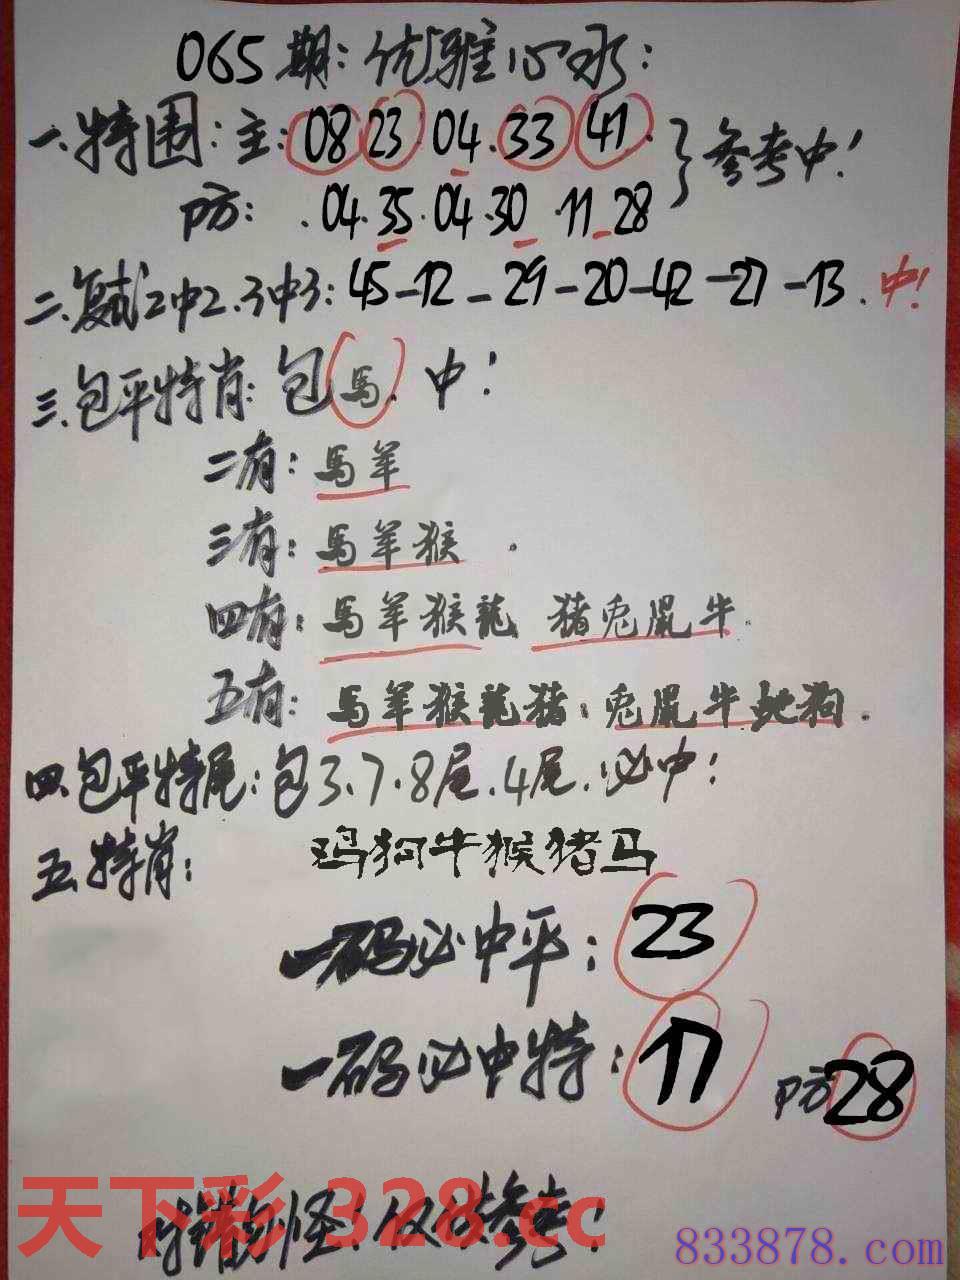 065期:优雅心水:
一.特围:主:08 23 04.33 41.
参考中!
防:.04.35.04.30.11 28
二.复试2中2.3中3:45-12-29-20-42-27-13.中!
三.包平特肖:包馬.中!
二有:馬羊
三有:馬羊猴.
四有:馬羊猴龍 猪兔鼠牛.
五有:馬羊猴龍猪:兔鼠牛蛇狗.
四.包平特尾:包3.7.8尾.4尾.必中!
五.特肖: 鸡狗牛猴猪马
一码必中平:23
一码必中特:17 防28
天下彩 328.cc
错勿怪!仅供参考!
833878.com